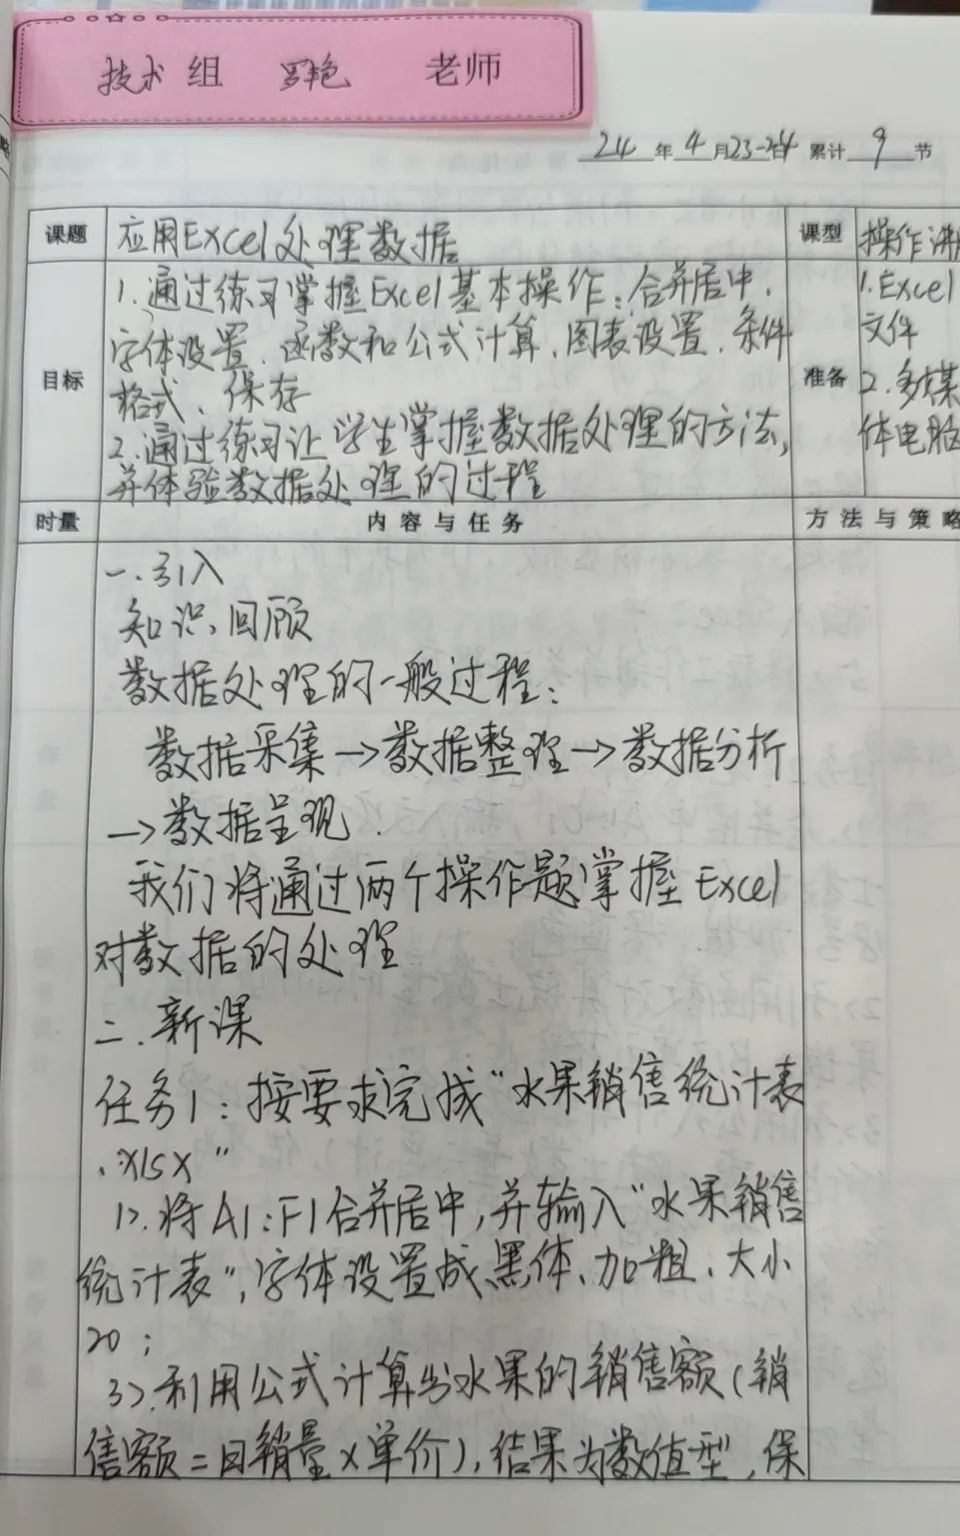 技术 组 罗艳 老师
24 年 4 月 23-24日 累计 9 节
课题 应用Excel处理数据 课型 操作讲
目标 1.通过练习掌握Excel基本操作:合并居中、
字体设置、函数和公式计算、图表设置、条件
格式、保存
2.通过练习让学生掌握数据处理的方法,
并体验数据处理的过程
准备 1.Excel
文件
2.多媒
体电脑
时量 内容与任务 方法与策略
一.引入
知识回顾
数据处理的一般过程:
数据采集→数据整理→数据分析
→数据呈现.
我们将通过两个操作题掌握Excel
对数据的处理
二.新课
任务1:按要求完成“水果销售统计表
.xlsx”
1>.将A1:F1合并居中,并输入“水果销售
统计表”,字体设置成黑体、加粗、大小
20;
3>.利用公式计算出水果的销售额(销
售额=日销量×单价),结果为数值型,保